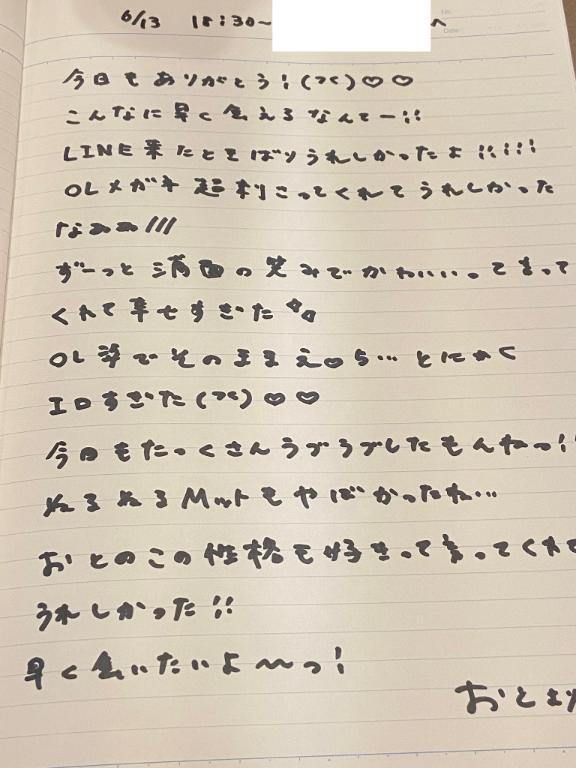 6/13 18:30~ へ
No.
Date
今日もありがとう!(つく)♡♡
こんなに早く会えるなんてー!!
LINE業たとてばりうれしかったよ!!!!!
OLメガネ超刺こってくれてうれしかった
なぁぁ///
ずーっと満面の笑みでかわいいって言って
くれて幸せすぎた
OL姿でそのままえ♡ち…とにかく
エロすぎた(つく)♡♡
今日もたっくさんラブラブしたもんねっ!
ぬるぬるMットもやばかったね…
おとのこの性格も好きって言ってくれて
うれしかった!!
早く会いたいよ〜っ!
おとより